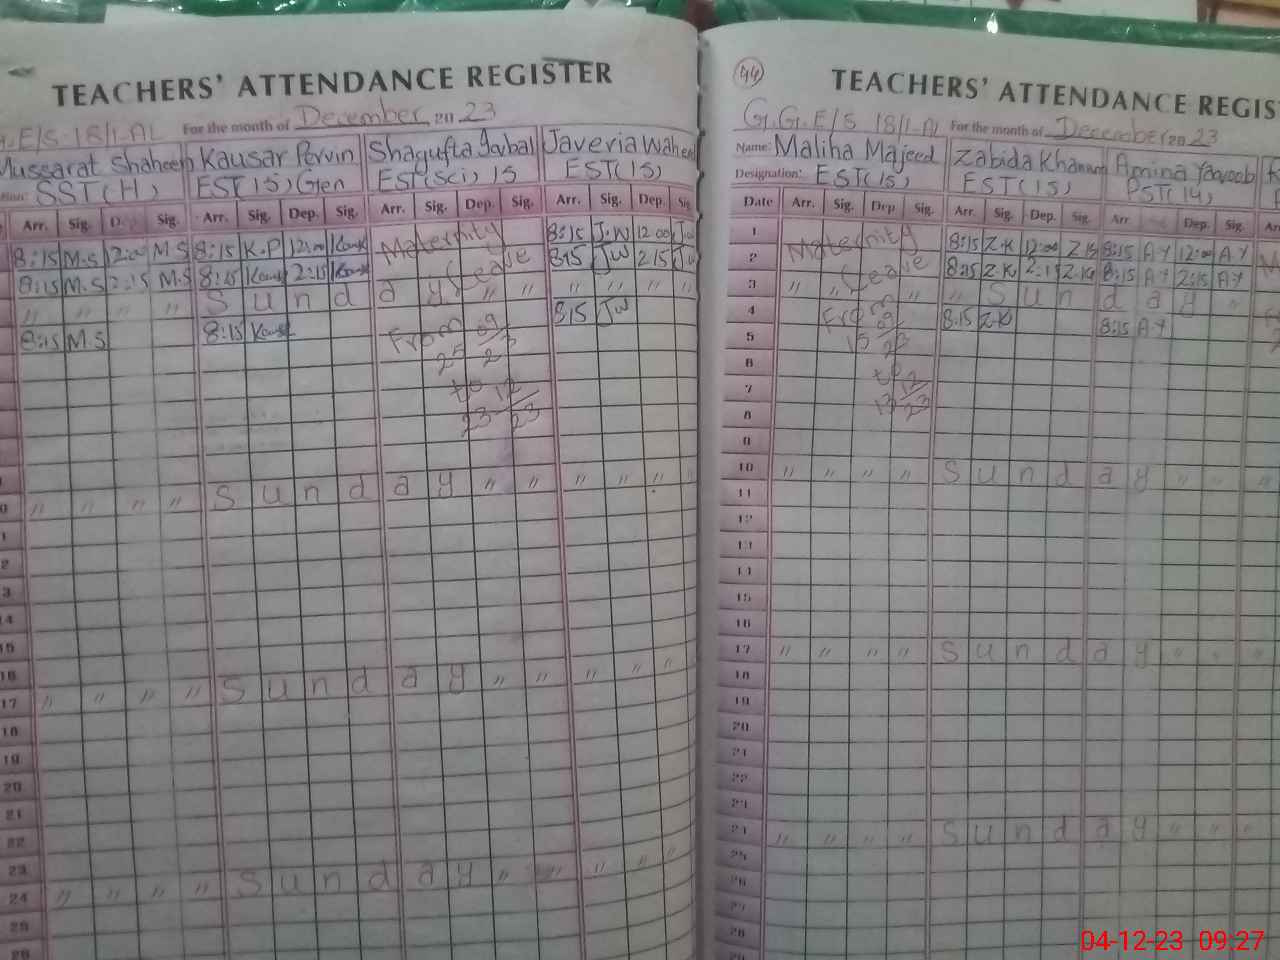 TEACHERS' ATTENDANCE REGISTER
For the month of December 20 23
Mussarat Shaheen Kausar Pervin Shagufta Iqbal Javeria Waheed
SST(H) EST(15) Gen EST(Sci) 15 EST(15)
Arr. Sig. Sig. Arr. Sig. Dep. Sig. Arr. Sig. Dep. Sig. Arr. Sig. Dep. Sig.
8:15 M.S 12:00 M.S 8:15 K.P 12:00 Maternity 8:15 J.W 12:00 Jw
8:15 M.S 2:15 M.S 8:15 2:15 Leave 8:15 JW 2:15 Jw
" " " " Sunday " " " " " "
8:15 M.S 8:15 From 8:15 JW
25 09 23
to
23 12 23
" " " " Sunday " " " " " "
" " " " Sunday " " " " " "
16
17
18
19
20
21
22
23
24 " " " " Sunday " " " "
25
44
TEACHERS' ATTENDANCE REGIS
G.G.E/S 18/1-AL For the month of December 20 23
Name: Maliha Majeed Zabida Khanum Amina Yaqoob
Designation: EST(15) EST(15) PST(14)
Date Arr. Sig. Dep Sig. Arr. Sig. Dep. Sig. Arr Dep. Sig.
1 Maternity 8:15 Z.K 12:00 8:15 A.Y 12:00 A.Y
2 Leave 8:15 Z.K 2:15 Z.K 8:15 A.Y 2:15 A.Y
3 " " " " Sunday "
4 From 8:15 Z.K 8:15 A.Y
5 15 09 23
6 to
7 13 12 23
8
9
10 " " " " Sunday " " "
11
12
13
14
15
16
17 " " " " Sunday " " "
18
19
20
21
22
23
24 " " " " Sunday " " "
25
26
27
28
04-12-23 09:27